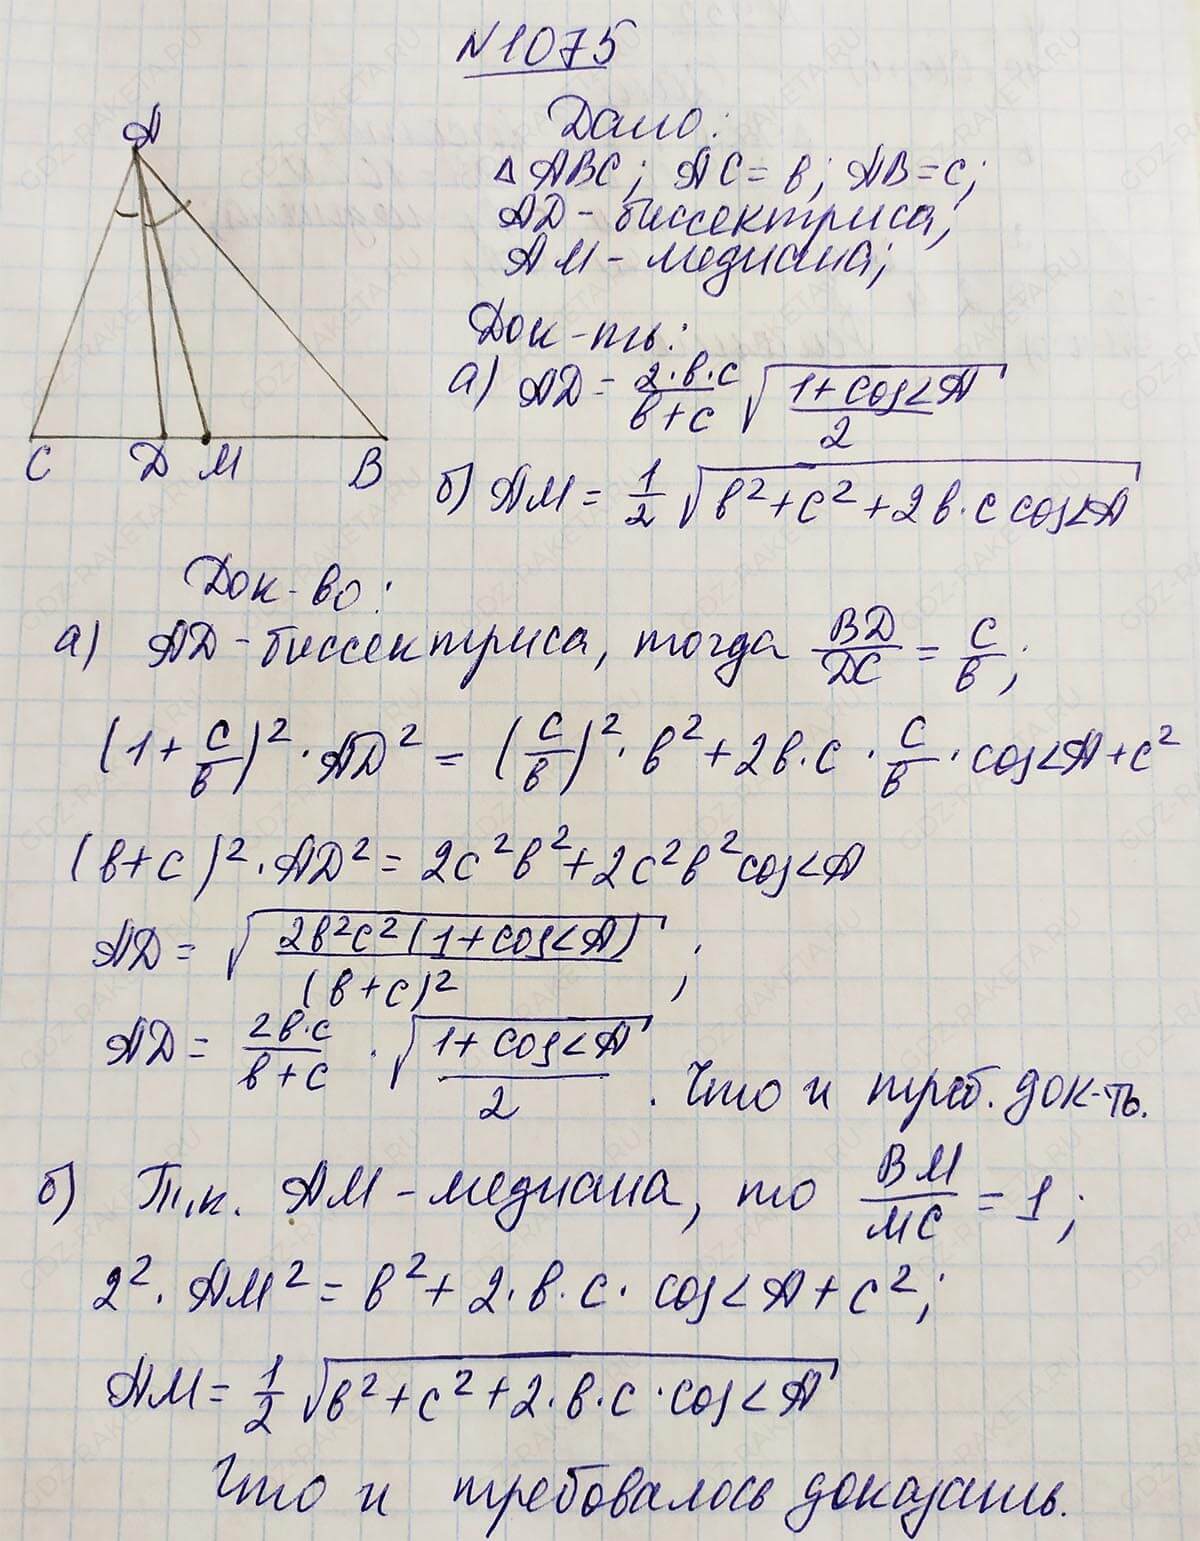 N 1075
A
C D M B
Дано:
Δ ABC; AC = в; AB = c;
AD - биссектриса;
AM - медиана;
Док-ть:
а) AD = 2·в·c/(в+c) √((1+cos∠A)/2)
б) AM = 1/2 √(в²+c²+2в·c cos∠A)
Док-во:
а) AD - биссектриса, тогда BD/DC = c/в;
(1+c/в)²·AD² = (c/в)²·в²+2в·c·c/в·cos∠A+c²
(в+c)²·AD² = 2c²в²+2c²в²cos∠A
AD = √(2в²c²(1+cos∠A)/(в+c)²);
AD = 2в·c/(в+c) · √((1+cos∠A)/2). Что и треб. док-ть.
б) Т.к. AM - медиана, то BM/MC = 1;
2²·AM² = в²+2·в·c·cos∠A+c²;
AM = 1/2 √(в²+c²+2·в·c·cos∠A)
Что и требовалось доказать.
GDZ-RAKETA.RU